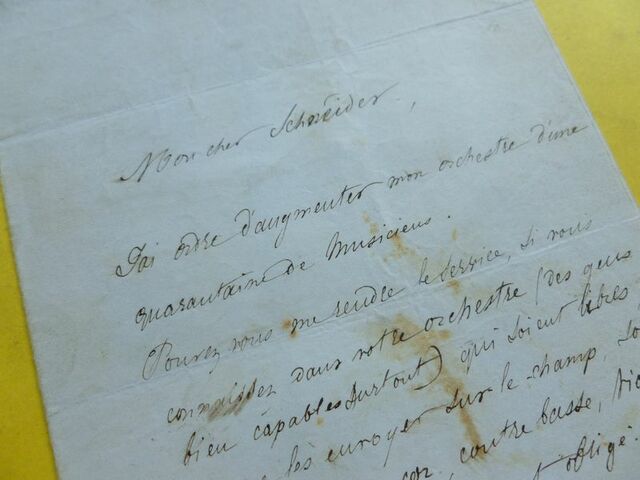 Mon cher Schneider,
J'ai ordre d'augmenter mon orchestre d'une
quarantaine de Musiciens.
Pouvez vous me rendre le service, si vous
connaissez dans votre orchestre (des gens
bien capables surtout) qui soient libres,
les envoyer sur le champ, so
contre basse,
obligé.